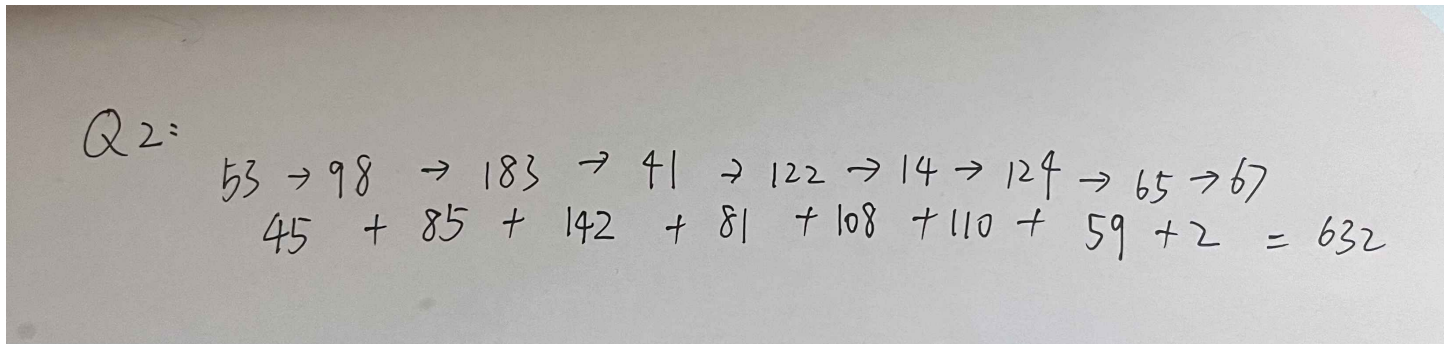 Q2:
53 → 98 → 183 → 41 → 122 → 14 → 124 → 65 → 67
45 + 85 + 142 + 81 + 108 + 110 + 59 + 2 = 632